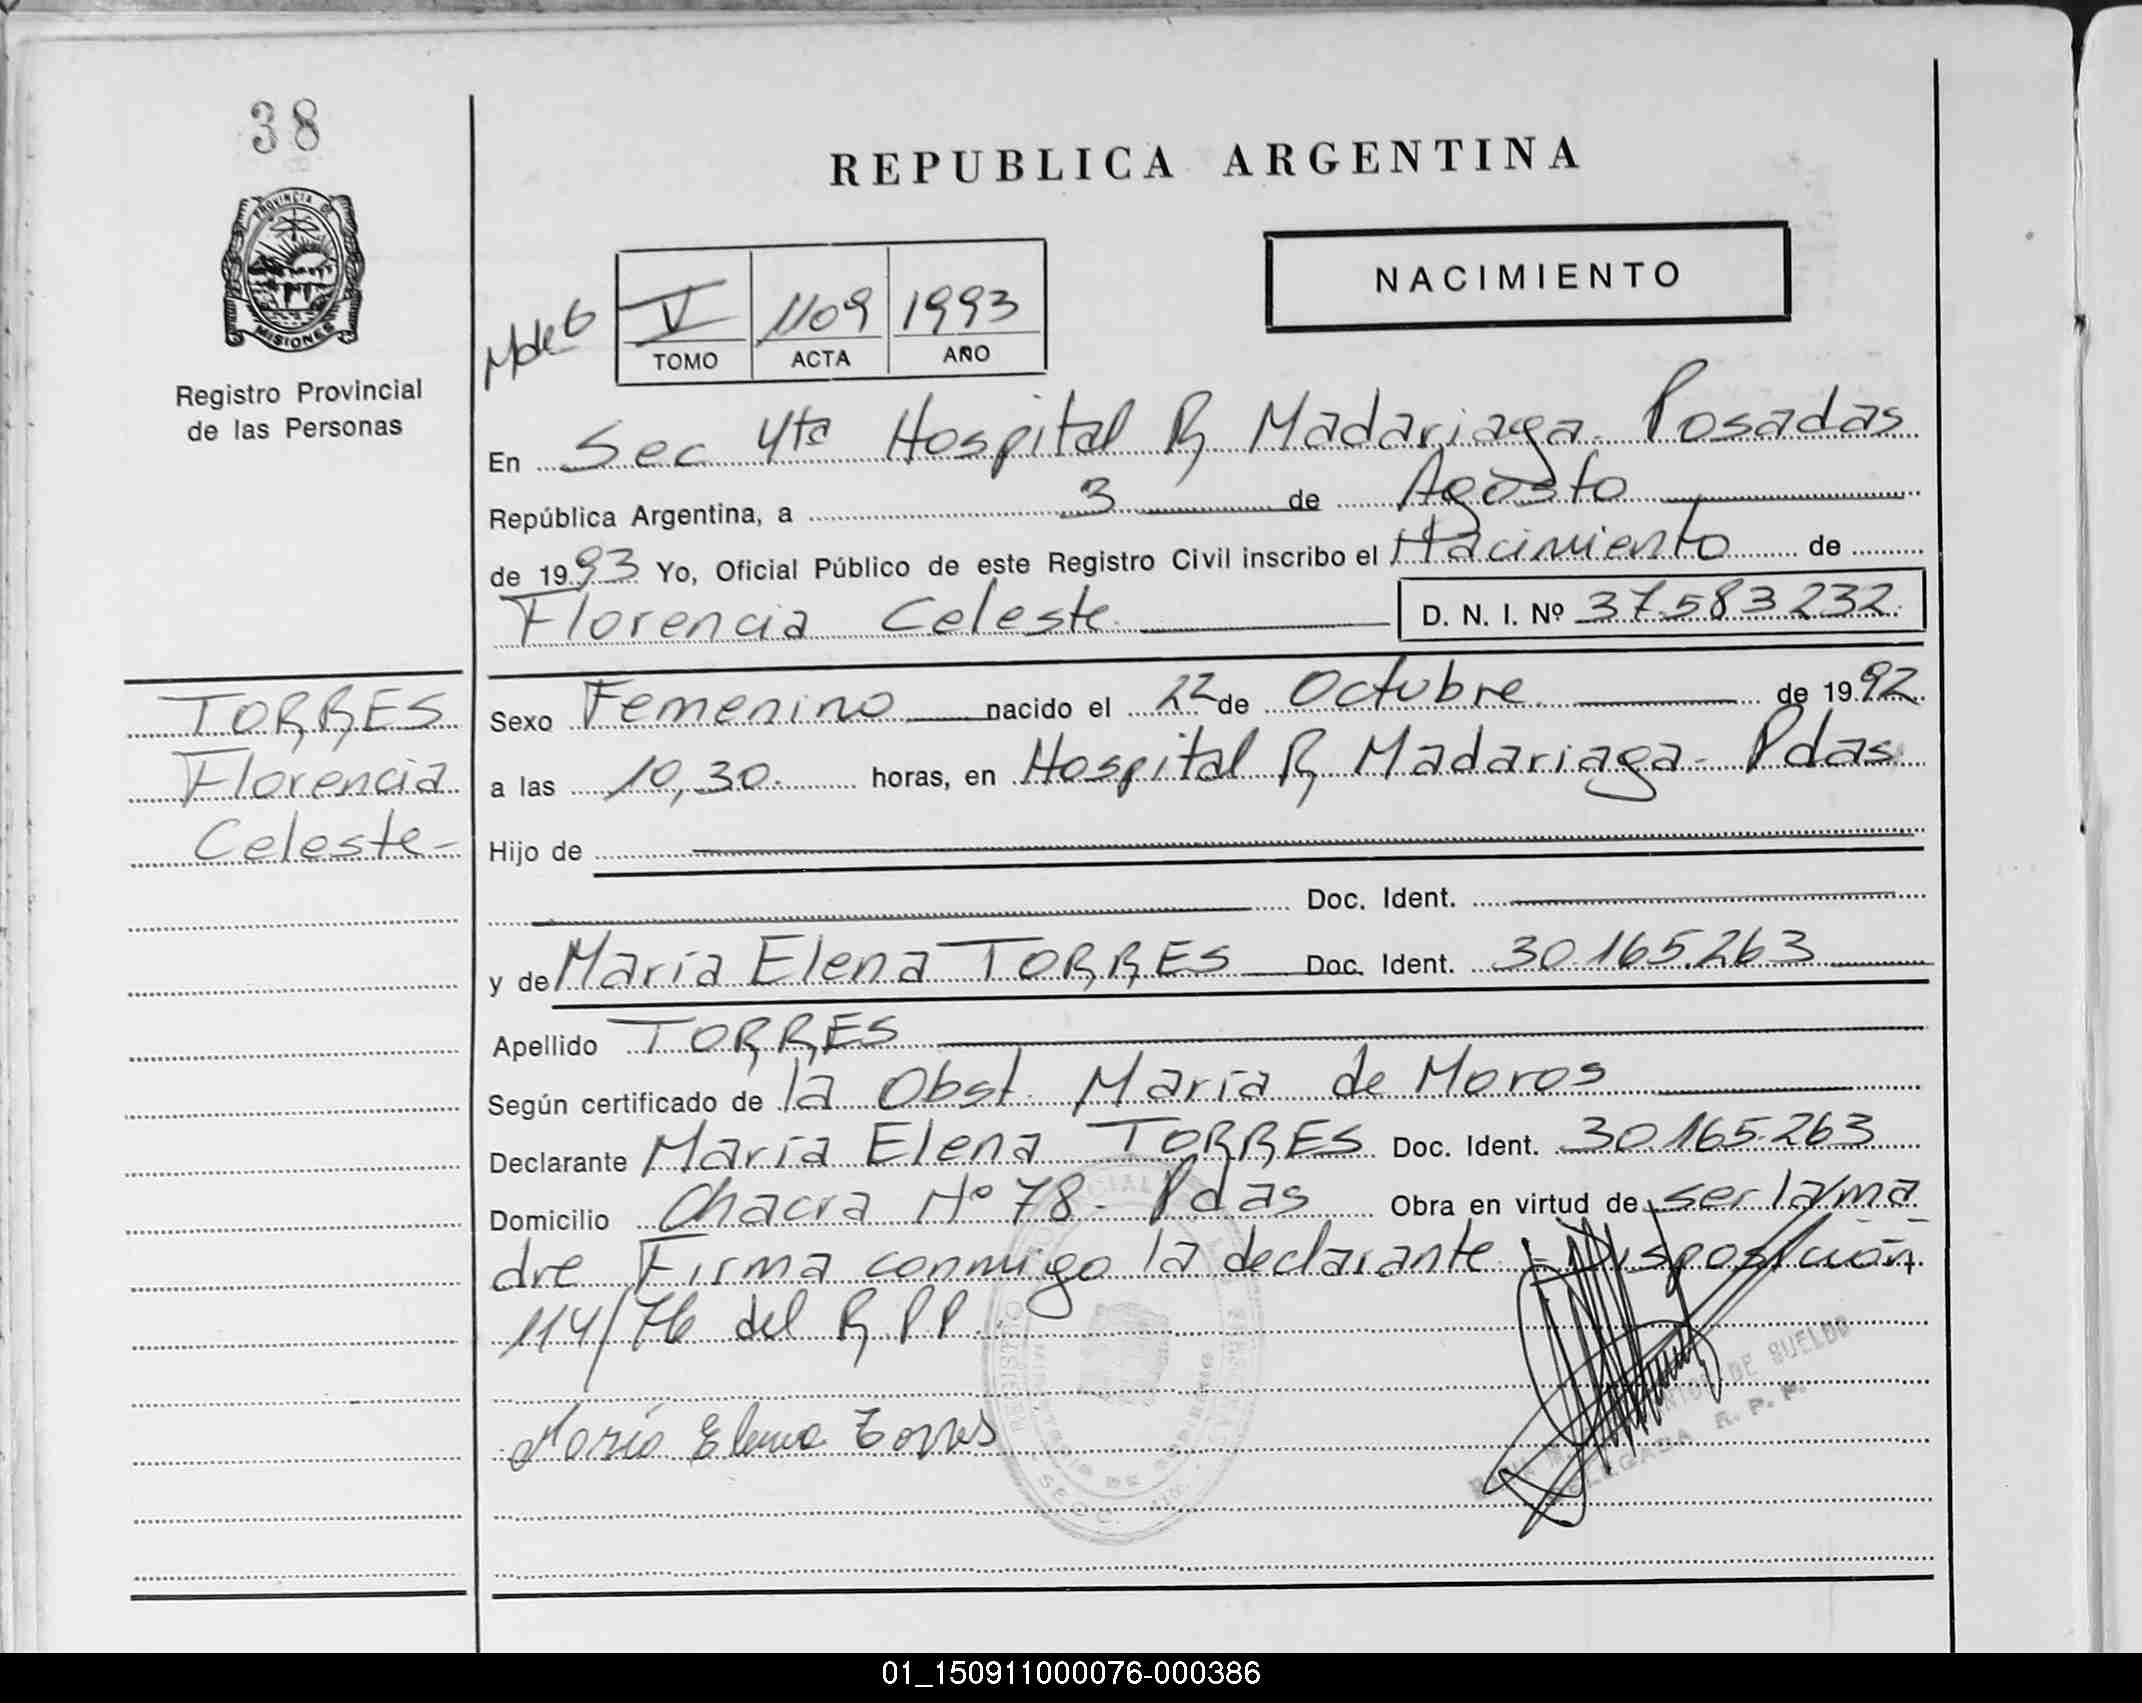 38
REPUBLICA ARGENTINA
PROVINCIA DE
MISIONES
Registro Provincial
de las Personas
NACIMIENTO
V 1109 1993
TOMO ACTA AÑO
En Sec 4ta Hospital R Madariaga. Posadas
República Argentina, a 3 de Agosto
de 1993 Yo, Oficial Público de este Registro Civil inscribo el Nacimiento de
Florencia Celeste. D. N. I. Nº 37.583.232.
TORRES
Florencia
Celeste-
Sexo Femenino nacido el 22 de Octubre. de 1992.
a las 10,30. horas, en Hospital R Madariaga- Pdas.
Hijo de
Doc. Ident.
y de María Elena TORRES Doc. Ident. 30.165.263
Apellido TORRES
Según certificado de la Obst. María de Moros
Declarante María Elena TORRES Doc. Ident. 30.165.263
Domicilio Chacra Nº 78- Pdas Obra en virtud de ser la ma
dre Firma conmigo la declarante - Disposición
114/76 del R.P.P.
María Elena Torres
DE SUELDO
DELEGADA R. P. P.
01_150911000076-000386